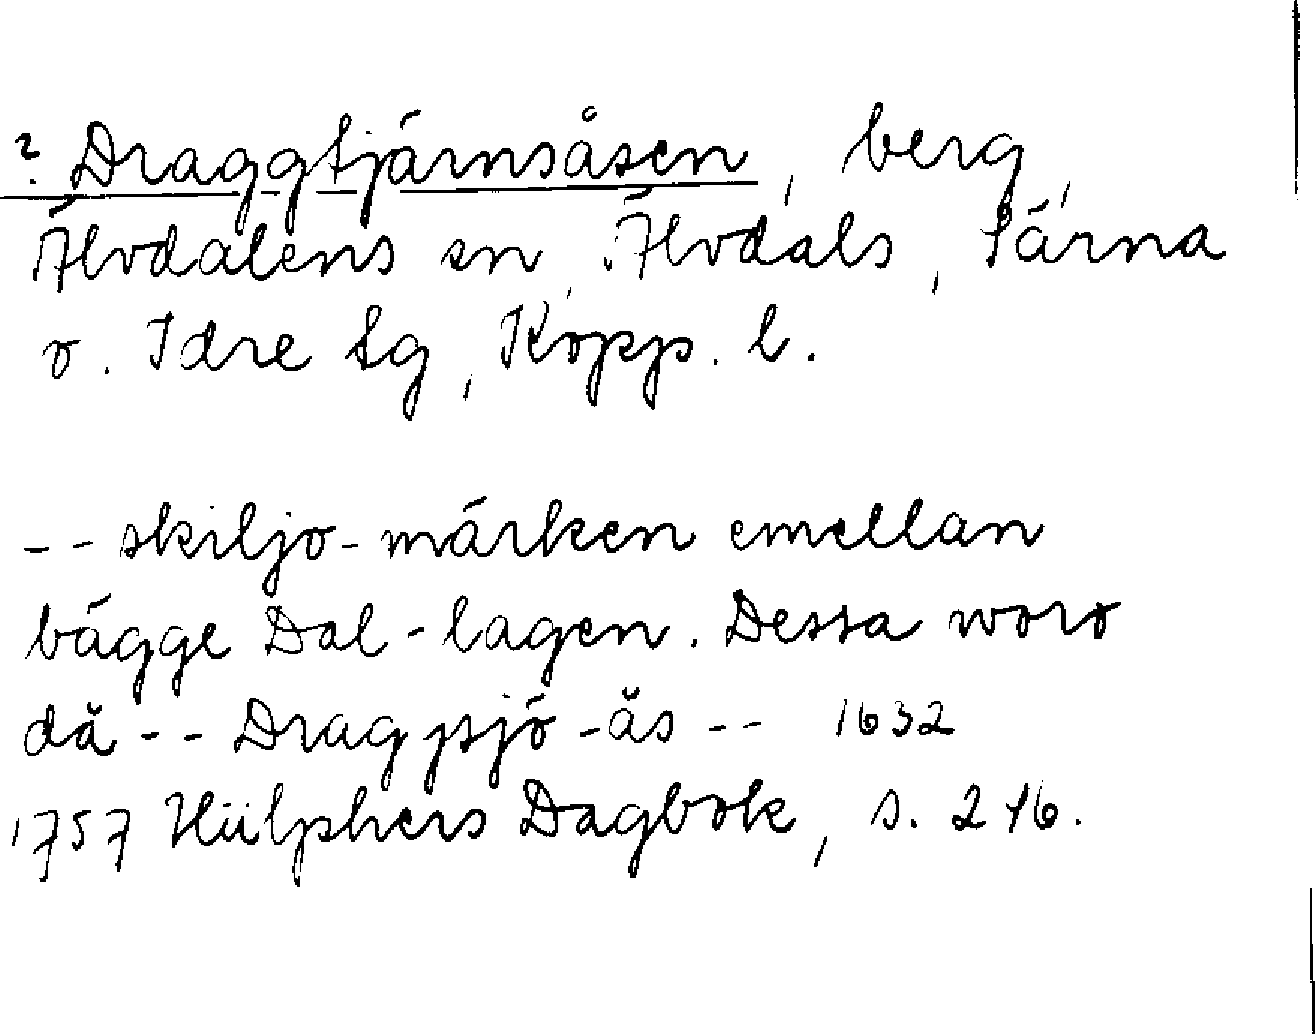 ? Draggtjärnsåsen, berg,
Älvdalens sn, Älvdals, Särna
o. Idre tg, Kopp. l.
-- skiljo-märken emellan
bägge Dal-lagen. Dessa woro
då -- Dragpsjö-ås -- 1632
1757 Hülphers Dagbok, s. 216.